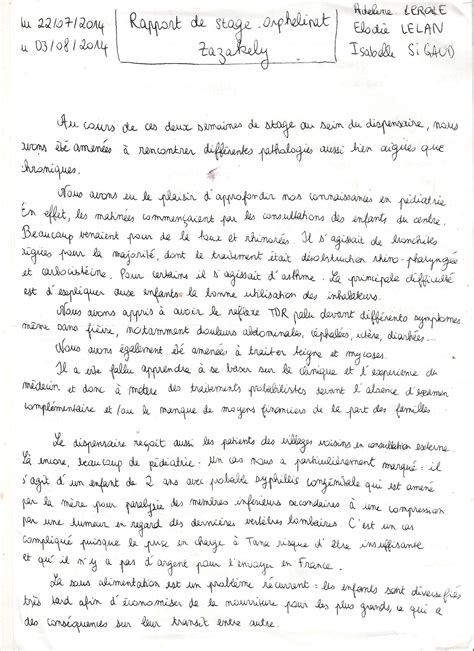 du 22/07/2014
au 03/08/2014
Rapport de stage orphelinat
Zazakely
Adeline LEROLE
Elodie LELAN
Isabelle SIGAUD
Au cours de ces deux semaines de stage au sein du dispensaire, nous
avons été amenées à rencontrer différentes pathologies aussi bien aigües que
chroniques.
Nous avons eu le plaisir d'approfondir nos connaissances en pédiatrie
En effet, les matinées commençaient par les consultations des enfants du centre.
Beaucoup venaient pour de la toux et rhinorées. Il s'agissait de bronchites
aigues pour la majorité, dont le traitement était désobstruction rhino-pharyngée
et carbocistéine. Pour certains il s'agissait d'asthme. La principale difficulté
est d'expliquer aux enfants la bonne utilisation des inhalateurs.
Nous avons appris à avoir le reflexe TDR palu devant différents symptomes
même sans fièvre, notamment douleurs abdominales, céphalées, ictère, diarrhées...
Nous avons également été amenées à traiter teigne et mycoses.
Il a fallu apprendre à se baser sur la clinique et l'experience du
médecin et donc à mettre des traitements probabilistes devant l'absence d'examen
complémentaire et/ou le manque de moyens financiers de la part des familles
Le dispensaire reçoit aussi les patients des villages voisins en consultation externe.
Là encore, beaucoup de pédiatrie. Un cas nous a particulièrement marqué : il
s'agit d'un enfant de 2 ans avec probable syphillis congénitale qui est amené
par la mère pour paralysie des membres inferieurs secondaires à une compression
par une tumeur en regard des dernières vertèbres lombaires. C'est un cas
compliqué puisque la prise en charge à Tana risque d'être insuffisante
et qu'il n'y a pas d'argent pour l'envoyer en France.
La sous alimentation est un problème récurrent : les enfants sont diversifiés
très tard afin d'économiser de la nourriture pour les plus grands, ce qui a
des conséquences sur leur transit entre autre.